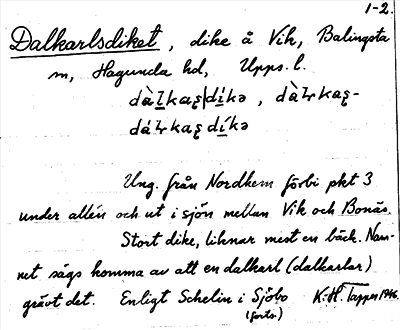 1-2.
Dalkarlsdiket, dike å Vik, Balingsta
sn, Hagunda hd, Upps. l.
dàḷkaȩ|díkə, dàꝆkaȩ-
dáꝆkaȩ díkə
Ung. från Nordkem förbi pkt 3
under allén och ut i sjön mellan Vik och Bonäs.
Stort dike, liknar mest en bäck. Nam-
net sägs komma av att en dalkarl (dalkarlar)
grävt det. Enligt Schelin i Sjöbo K.-H. Tapper 1946.
(forts.)